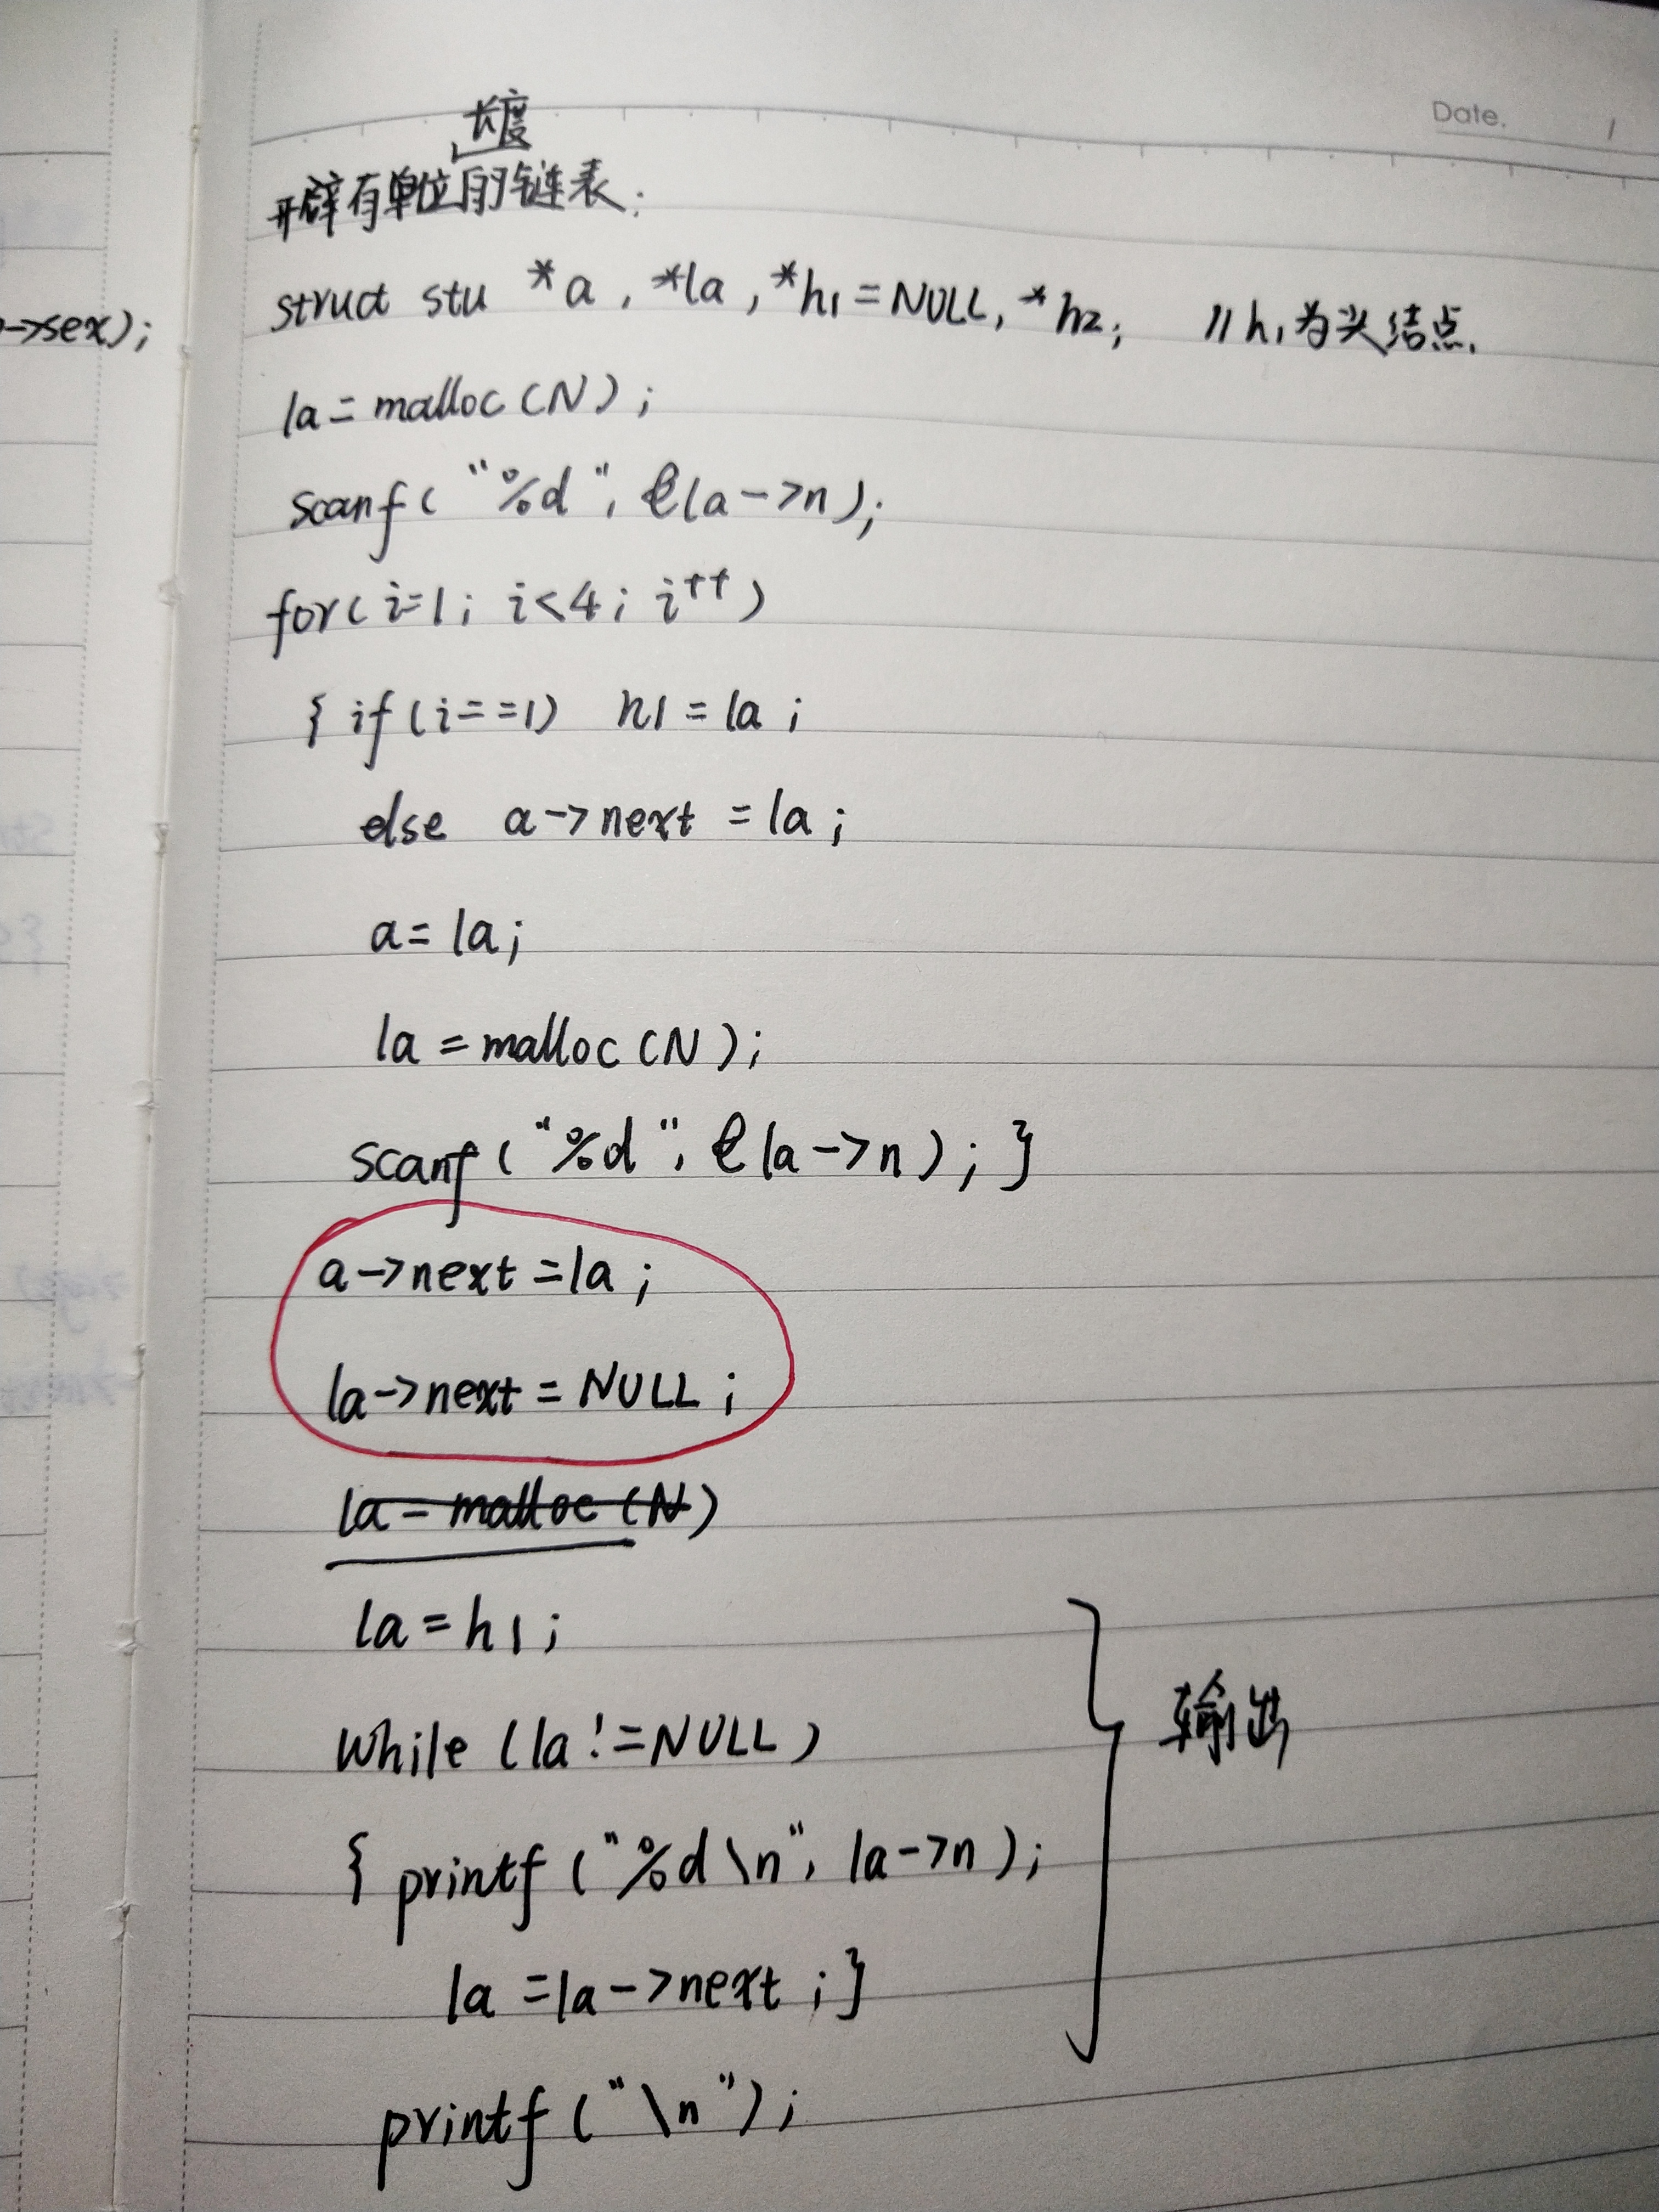 Date.
长度
开辟有单位的链表:
struct stu *a, *la, *h1=NULL, *h2; //h1为头结点.
->sex);
la=malloc(N);
scanf("%d", &la->n);
for(i=1; i<4; i++)
{if(i==1) h1=la;
else a->next=la;
a=la;
la=malloc(N);
scanf("%d", &la->n);}
a->next=la;
la->next=NULL;
la=malloc(N)
la=h1;
while(la!=NULL)
输出
{printf("%d\n", la->n);
la=la->next;}
printf("\n");